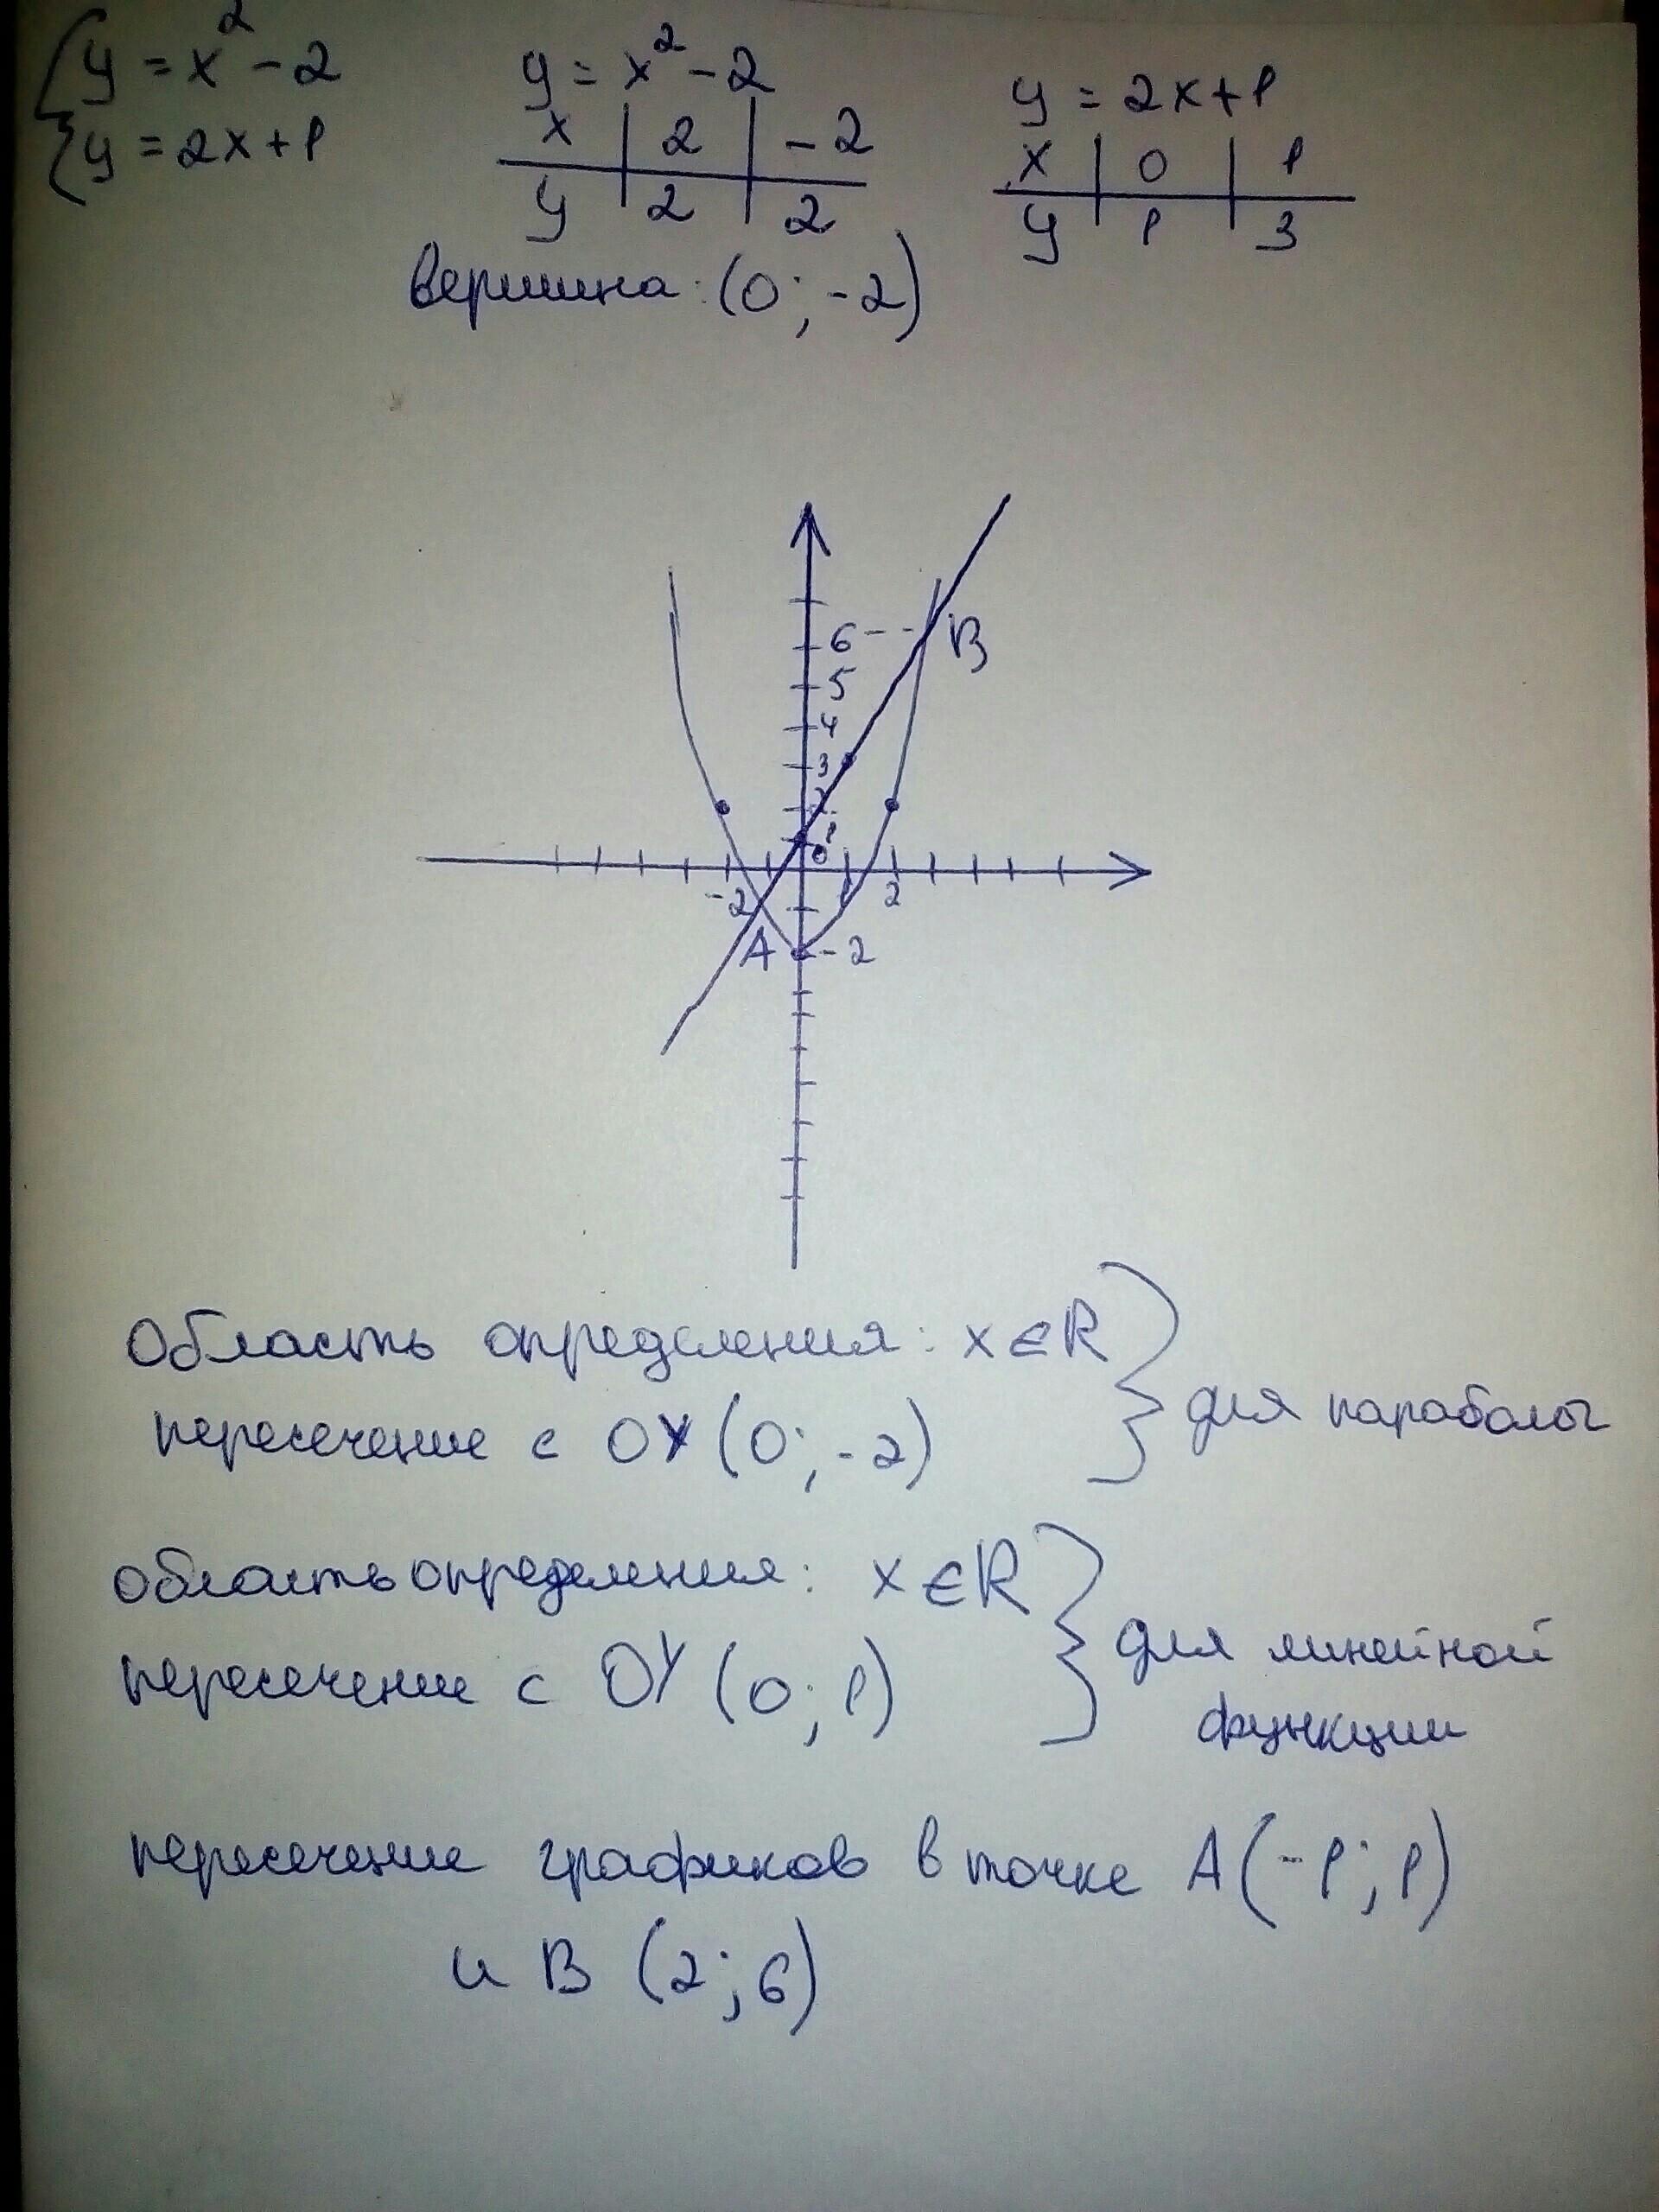 {y = x² - 2
{y = 2x + 1
y = x² - 2
x | 2 | -2
y | 2 | 2
вершина: (0; -2)
y = 2x + 1
x | 0 | 1
y | 1 | 3
6
B
5
4
3
2
1
0
-2
1
2
A
-2
Область определения: x ∈ R
пересечение с OY (0; -2)
} для параболы
область определения: x ∈ R
пересечение с OY (0; 1)
} для линейной
функции
пересечение графиков в точке A (-1; 1)
и B (2; 6)